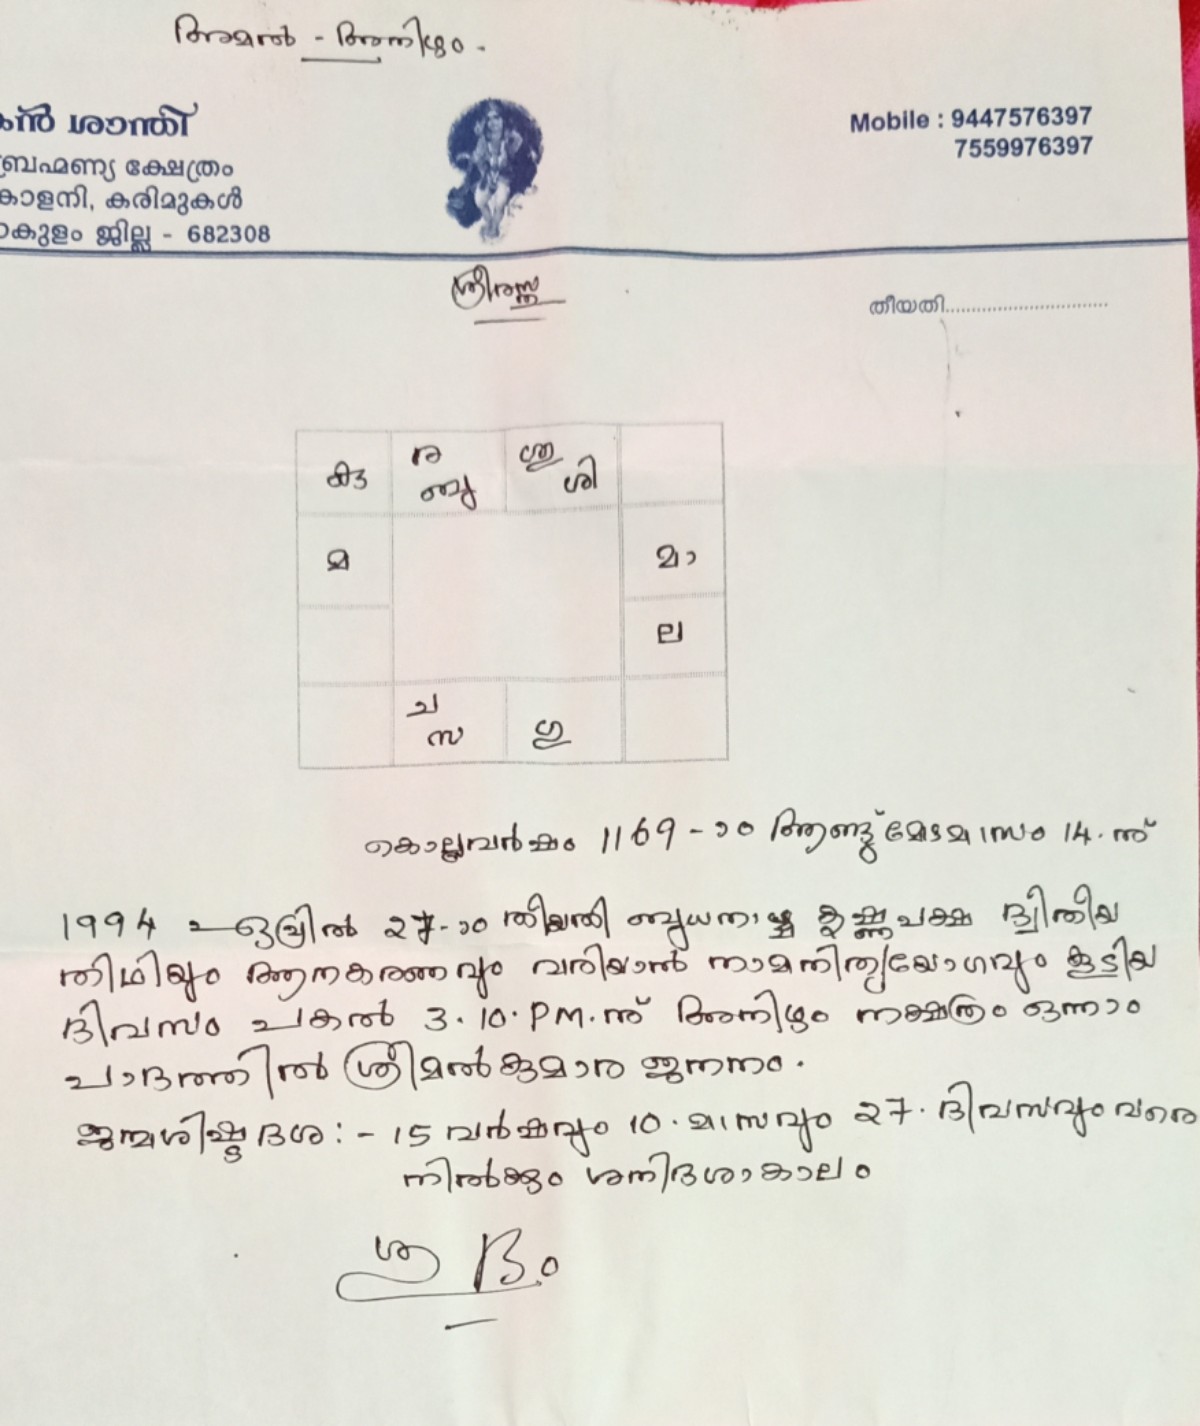 അമൽ - അനിഴം.
കൻ ശാന്തി
ബ്രഹ്മണ്യ ക്ഷേത്രം
കാളനി, കരിമുകൾ
ാകുളം ജില്ല - 682308
Mobile : 9447576397
7559976397
ശ്രീരസ്തു
തീയതി..............................
കു ര ശു
ബു ശി
മ മാ
ല
ച
സ ഗു
കൊല്ലവർഷം 1169-ാം ആണ്ട് മേടമാസം 14.ന്
1994 ഏപ്രിൽ 27-ാം തീയതി ബുധനാഴ്ച കൃഷ്ണപക്ഷ ദ്വിതീയ
തിഥിയും ആനകരണവും വരിയാൻ നാമനിത്യയോഗവും കൂടിയ
ദിവസം പകൽ 3.10.PM.ന് അനിഴം നക്ഷത്രം ഒന്നാം
പാദത്തിൽ ശ്രീമൽകുമാര ജനനം.
ജന്മശിഷ്ടദശ:- 15 വർഷവും 10.മാസവും 27.ദിവസവും വരെ
നിൽക്കും ശനിദശാകാലം